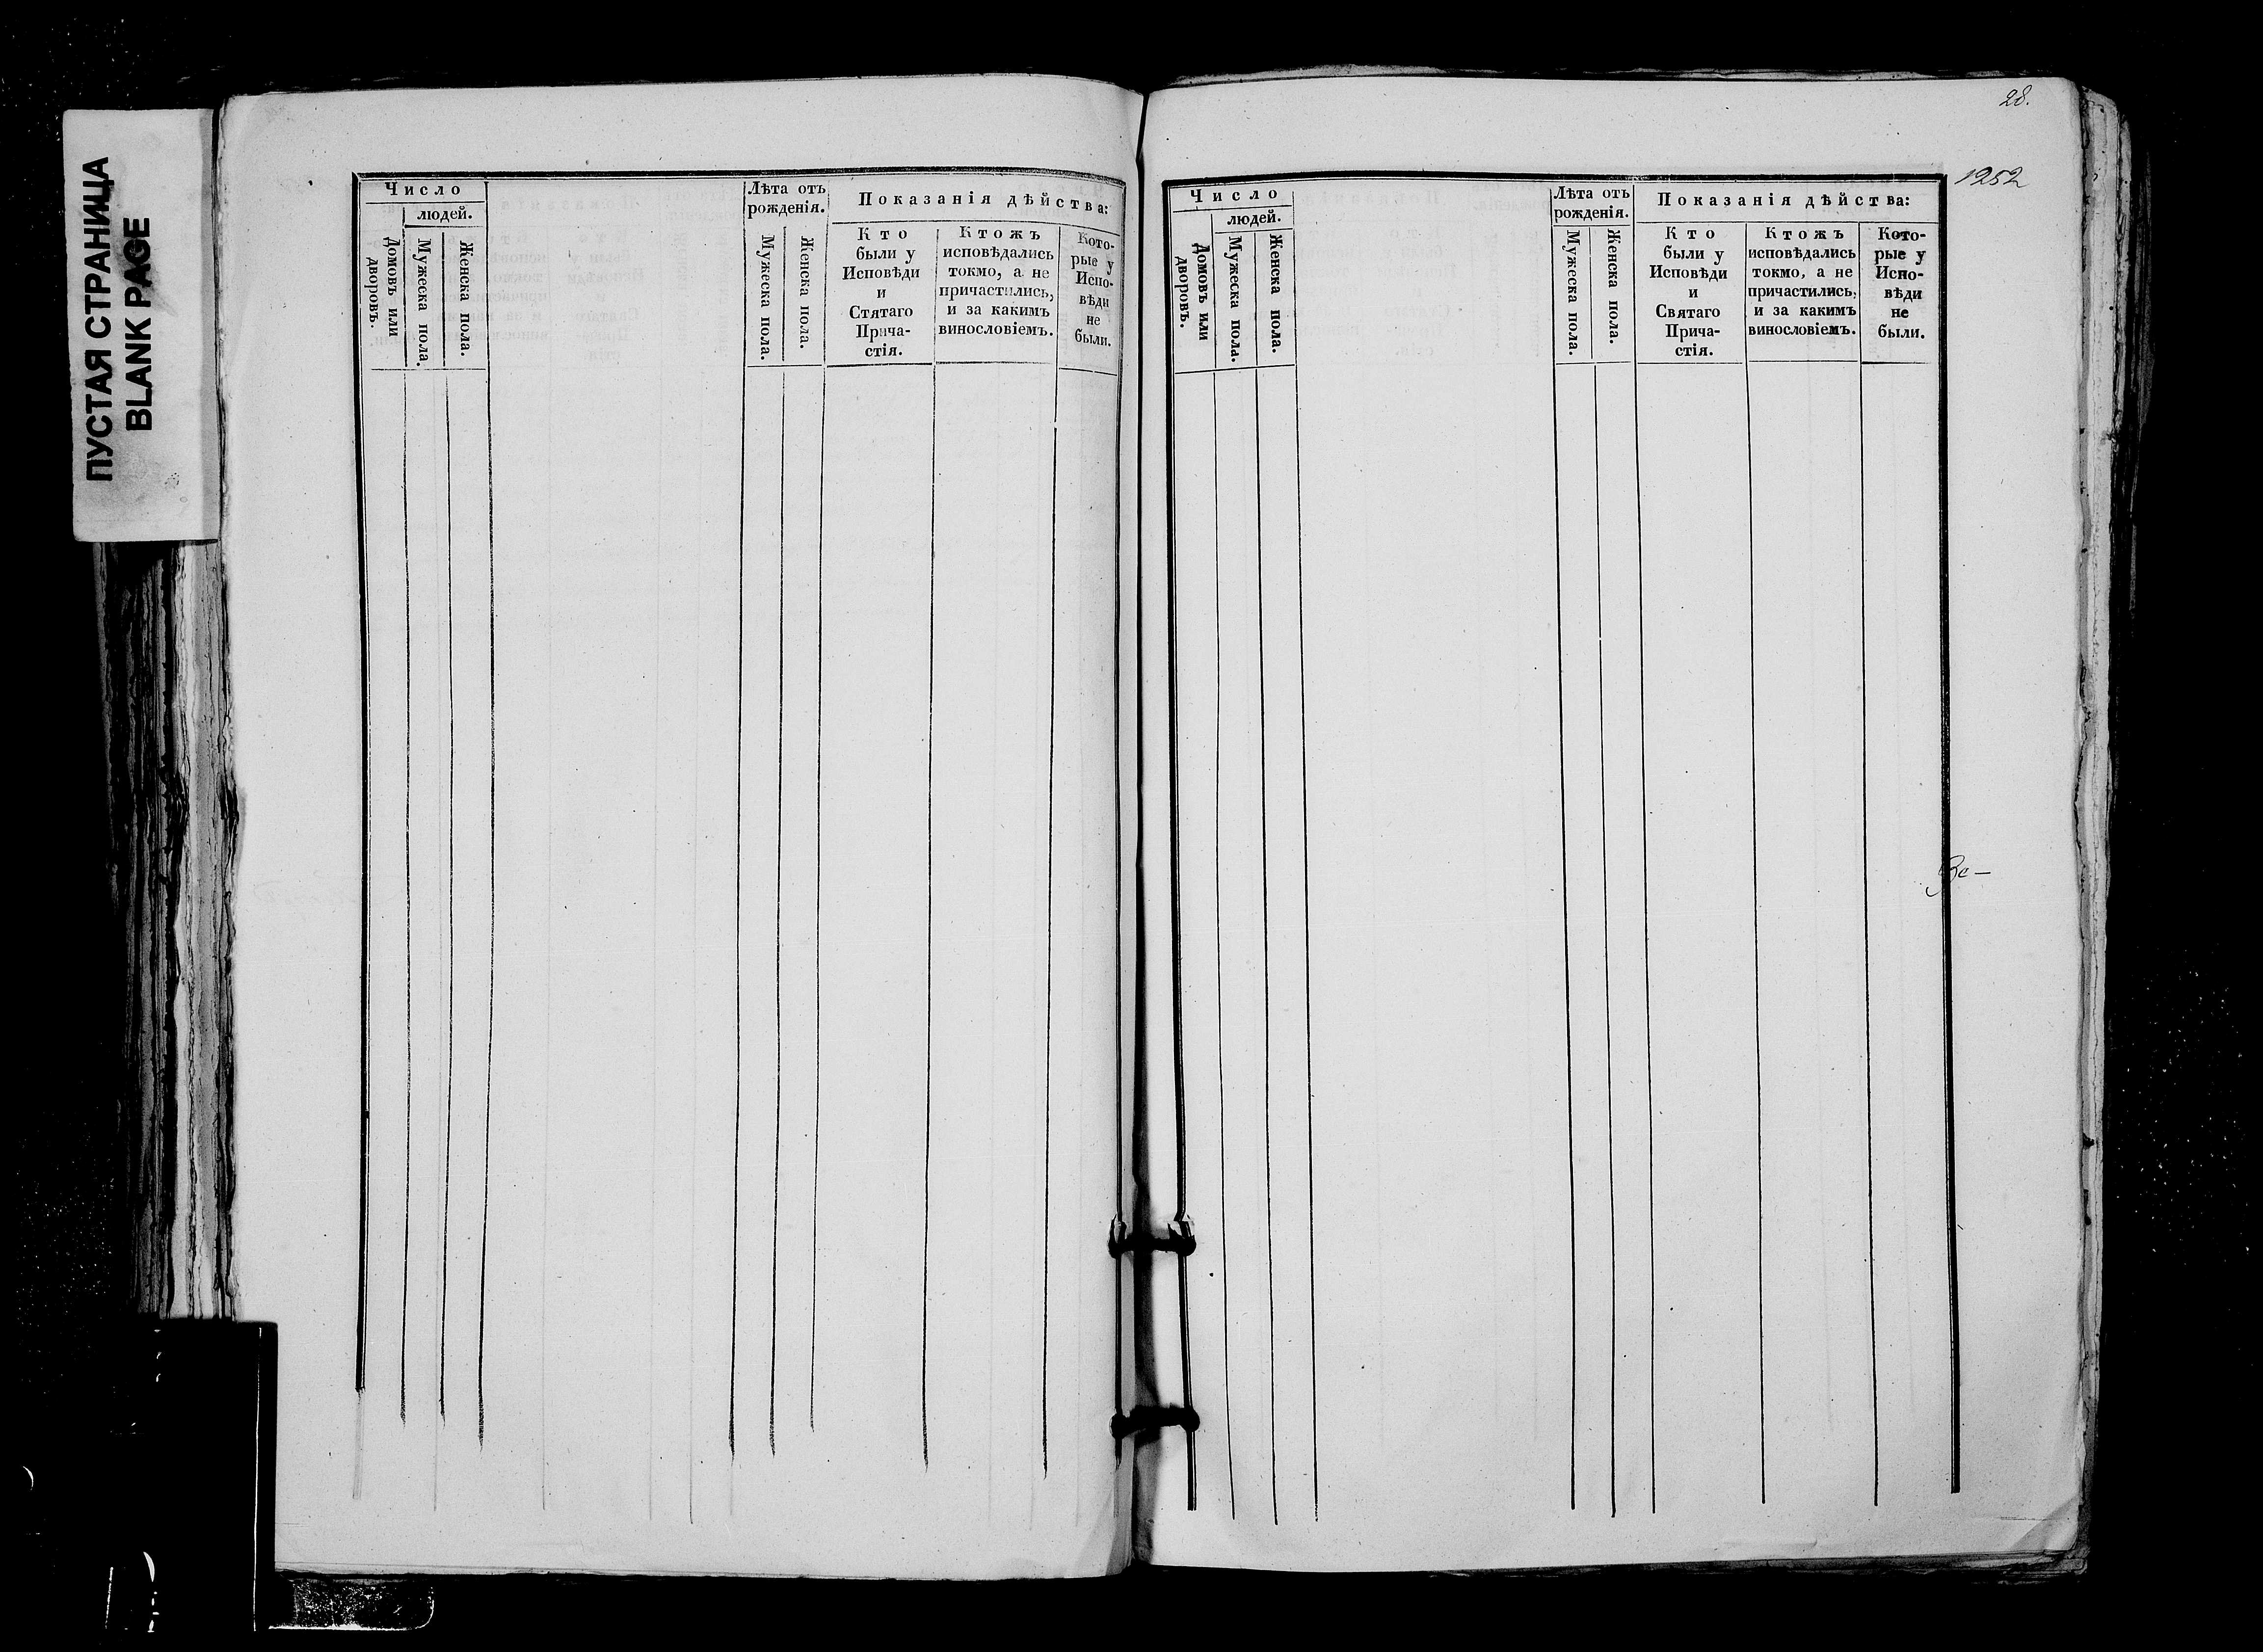 ПУСТАЯ СТРАНИЦА
BLANK PAGE
Число
людей.
Домовъ или
дворовъ.
Мужеска пола.
Женска пола.
Лѣта отъ
рожденія.
Мужеска пола.
Женска пола.
Показанія дѣйства:
Кто
были у
Исповѣди
и
Стятаго
Прича-
стія.
Ктожъ
исповѣдались
токмо, а не
причастились,
и за какимъ
винословіемъ.
Кото-
рые у
Испо-
вѣди
не
были.
28.
1252
Число
людей.
Домовъ или
дворовъ.
Мужеска пола.
Женска пола.
Лѣта отъ
рожденія.
Мужеска пола.
Женска пола.
Показанія дѣйства:
Кто
были у
Исповѣди
и
Святаго
Прича-
стія.
Ктожъ
исповѣдались
токмо, а не
причастились,
и за какимъ
винословіемъ.
Кото-
рые у
Испо-
вѣди
не
были.